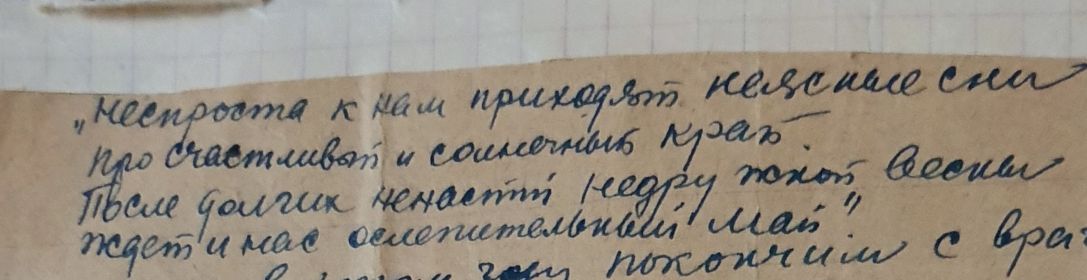 „Неспроста к нам приходят неясные сны
про счастливый и солнечный край
После долгих ненастий недружной весны
ждет и нас ослепительный май"
покончим с